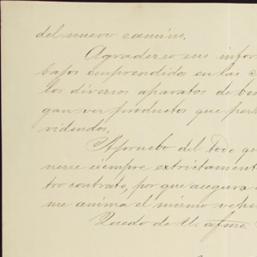 del nuevo camino.
Agradezco sus infor
bajos emprendidos en las
los diversos aparatos de ben
gan ver productos que pers
videndos.
Apruebo del todo qu
nerse siempre extrictament
tro contrato, por que asegura
me anima el mismo
Quedo de U. afmo.